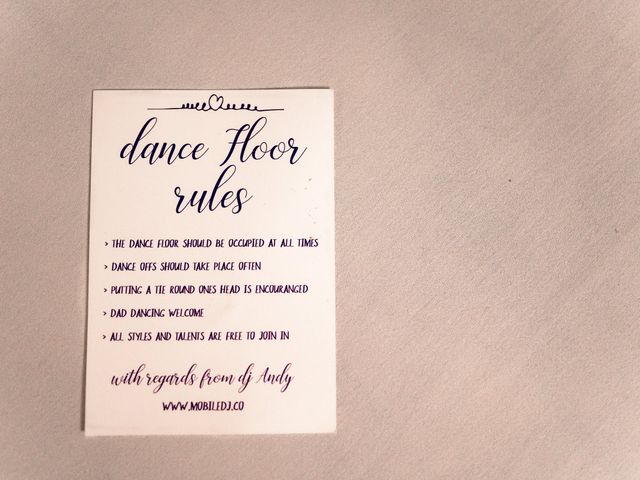 dance Floor
rules
> THE DANCE FLOOR SHOULD BE OCCUPIED AT ALL TIMES
> DANCE OFFS SHOULD TAKE PLACE OFTEN
> PUTTING A TIE ROUND ONES HEAD IS ENCOURANGED
> DAD DANCING WELCOME
> ALL STYLES AND TALENTS ARE FREE TO JOIN IN
with regards from dj Andy
WWW.MOBILEDJ.CO